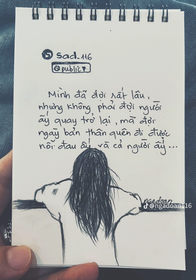 sad.116
@public
Mình đã đợi rất lâu,
nhưng không phải đợi người
ấy quay trở lại, mà đợi
ngày bản thân quên đi được
nỗi đau ấy và cả người ấy...